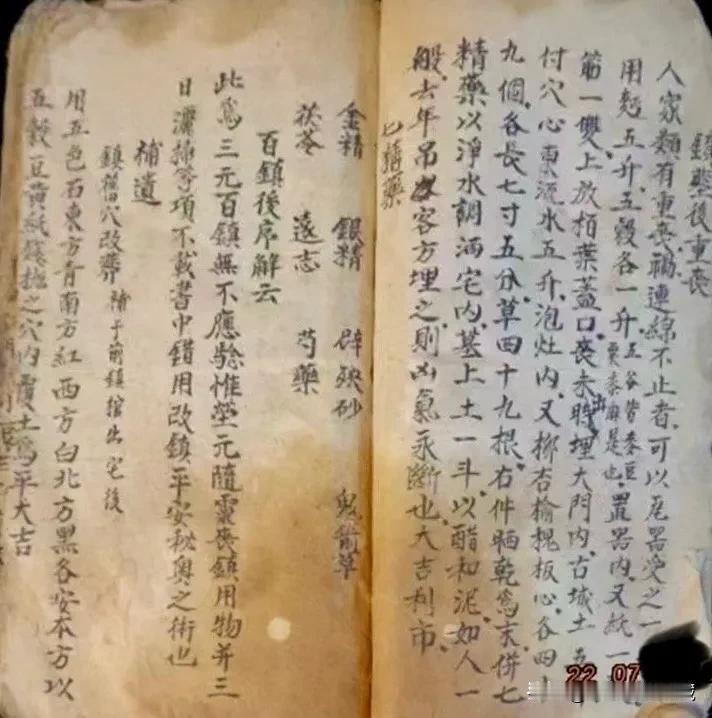 鎮葬後重喪
人家類有重喪禍連綿不止者可以尾器受之一
用麪五升五穀各一升五谷皆麥豆粟黍麻是也置器內又紙一
筋一雙上放栢葉蓋口喪未出時埋大門內古城土五
付穴心東流水五升泡灶內又柳杏榆槐板心各四十
九個各長七寸五分草四十九根右件晒乾為末併七
精藥以淨水調洒宅內墓上土一斗以醋和泥如人一
般去年吊客方埋之則凶氣永斷也大吉利市
七精藥
金精 銀精 辟殃砂 鬼箭草
茯苓 遠志 芍藥
百鎮後序解云
此為三元百鎮無不應驗惟塋元隨靈喪鎮用物并三
日灑掃等項不載書中錯用改鎮平安秘奥之術也
補遺
鎮舊穴改葬 除于前鎮棺出宅後
用五色石東方青南方紅西方白北方黑各安本方以
五穀豆黄紙鎮撫之穴內覆土為平大吉
22 07